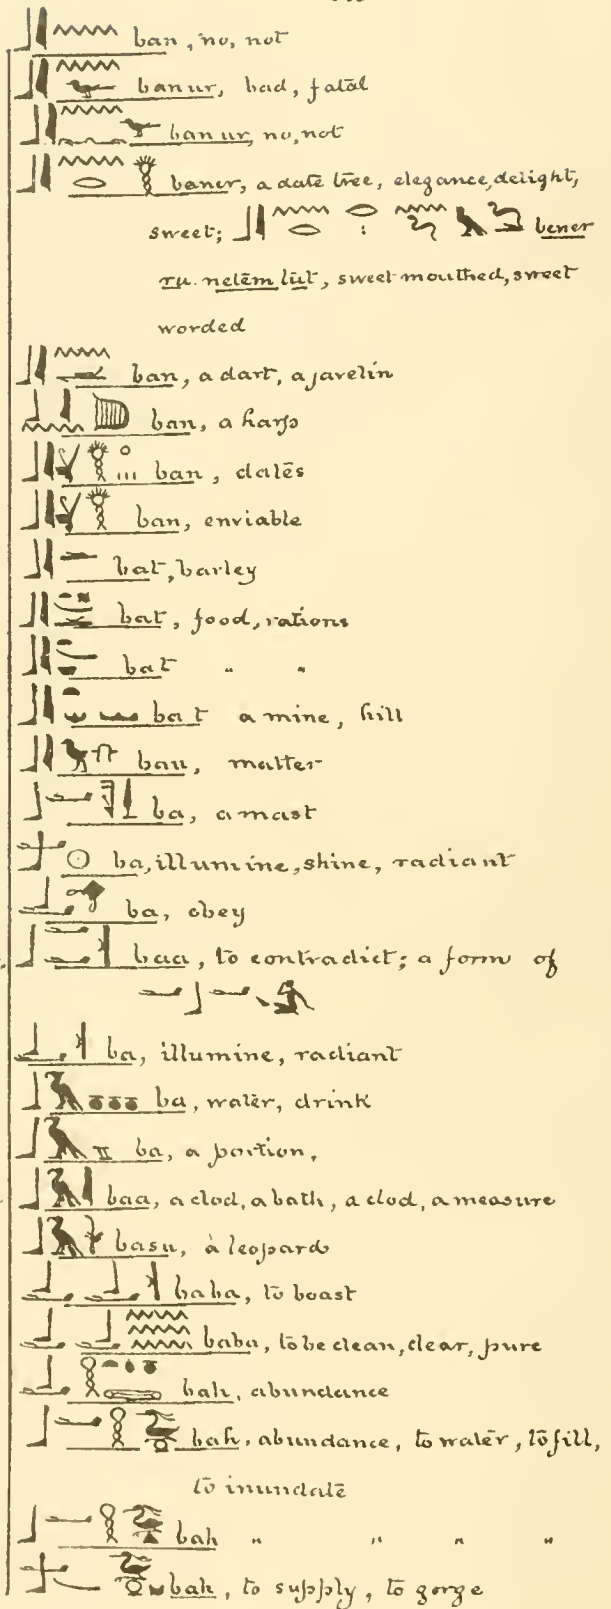 ban, no, not
ban ur, bad, fatal
ban ur, no, not
baner, a date tree, elegance, delight,
sweet; bener
ru. netem lut, sweet mouthed, sweet
worded
ban, a dart, a javelin
ban, a harp
ban, dates
ban, enviable
bat, barley
bat, food, rations
bat " "
bat a mine, hill
bau, matter
ba, a mast
ba, illumine, shine, radiant
ba, obey
baa, to contradict; a form of
ba, illumine, radiant
ba, water, drink
ba, a portion,
baa, a clod, a bath, a clod, a measure
basu, a leopard
baba, to boast
baba, to be clean, clear, pure
bah, abundance
bah, abundance, to water, to fill,
to inundate
bah " " " "
bah, to supply, to gorge